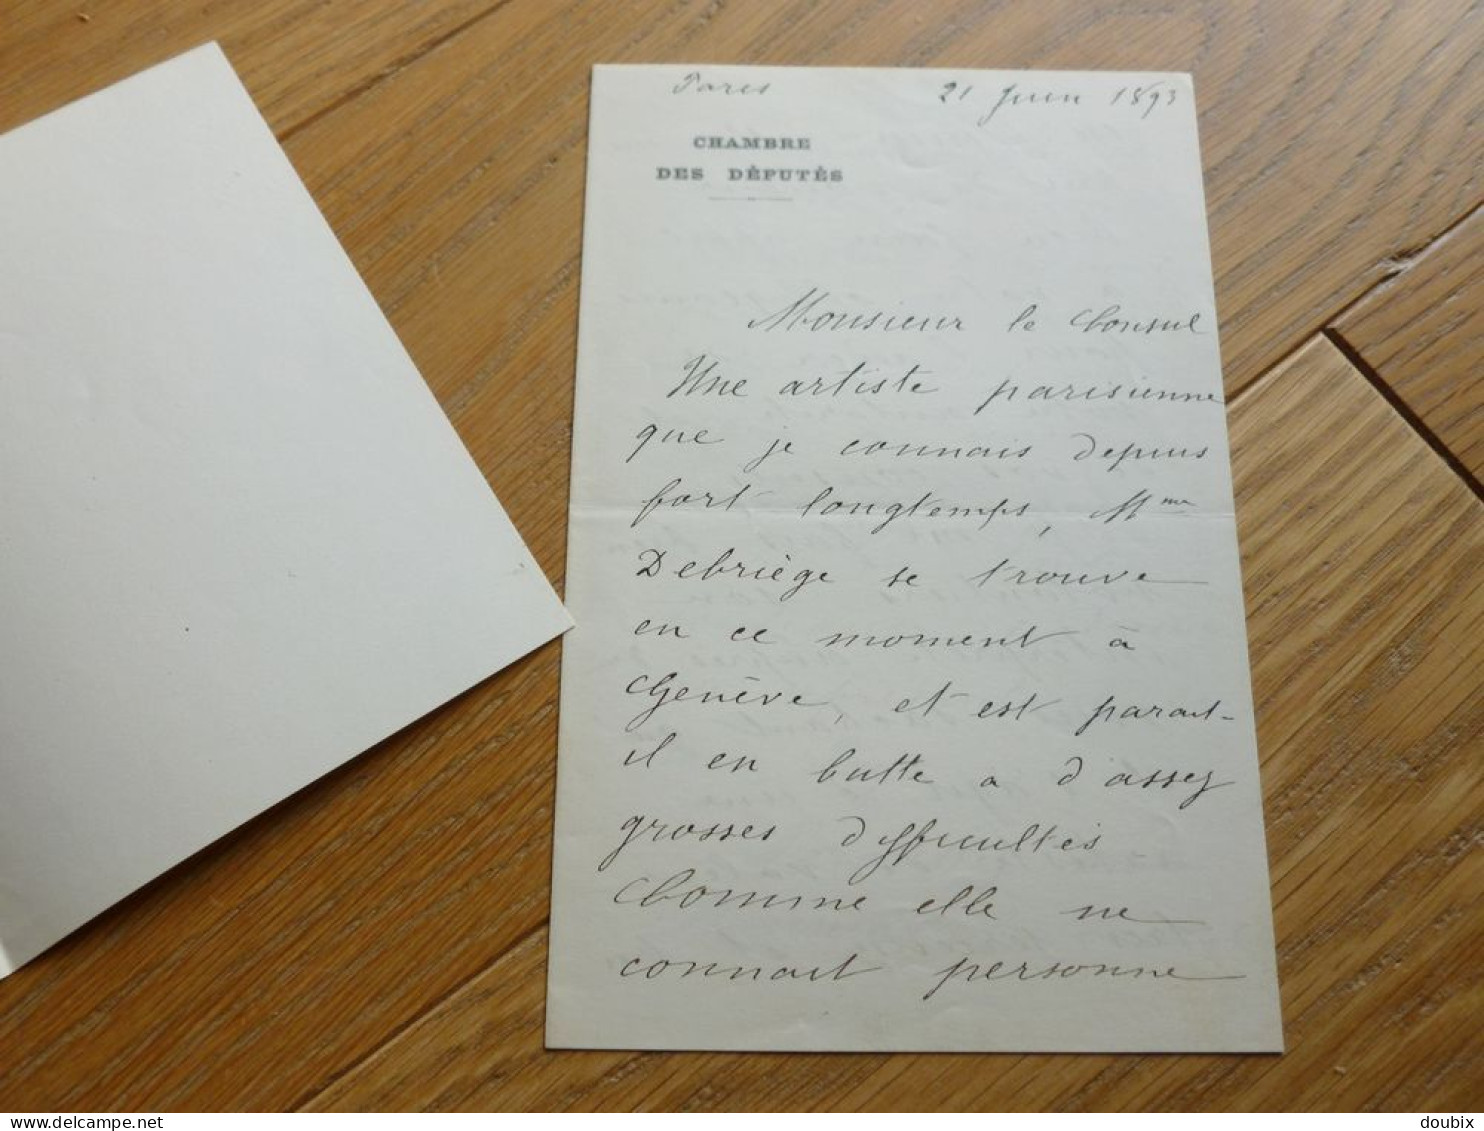 Paris 21 Juin 1893
CHAMBRE
DES DÉPUTÉS
Monsieur le Consul
Une artiste parisienne
que je connais depuis
fort longtemps, Mme
Debriège se trouve
en ce moment à
Genève, et est parait-
il en butte a d'assez
grosses difficultés
Comme elle ne
connait personne
delcampe.net
doubix